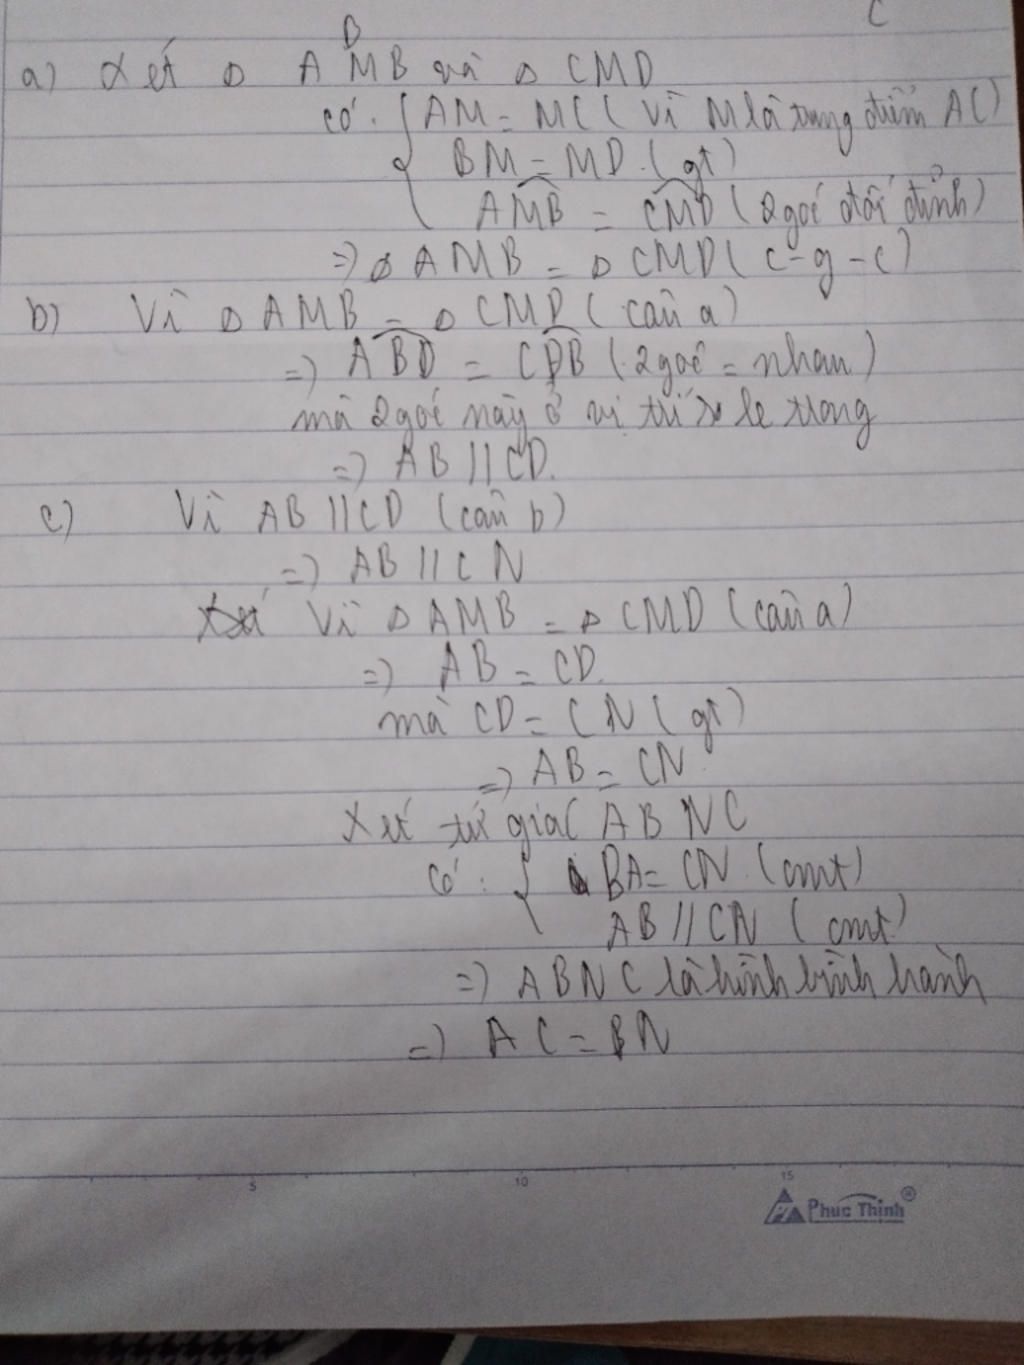 B
C
a) Xét Δ AMB và Δ CMD
có: { AM = MC ( vì M là trung điểm AC)
BM = MD (gt)
AMB = CMD ( 2 goế đối đỉnh)
=) Δ AMB = Δ CMD ( c-g-c)
b) Vì Δ AMB = Δ CMD ( câu a)
=) ABD = CDB ( 2 goế = nhau )
mà 2 goế này ở vị trí so le trong
=) AB // CD.
c) Vì AB // CD (câu b)
=) AB // CN
Vì Δ AMB = Δ CMD (câu a)
=) AB = CD.
mà CD = CN ( gt)
=) AB = CN
Xét tứ giác ABNC
Có : { BA = CN (cmt)
AB // CN ( cmt)
=) ABNC là hình bình hành
=) AC = BN
5 10 15
Phuc Thinh®